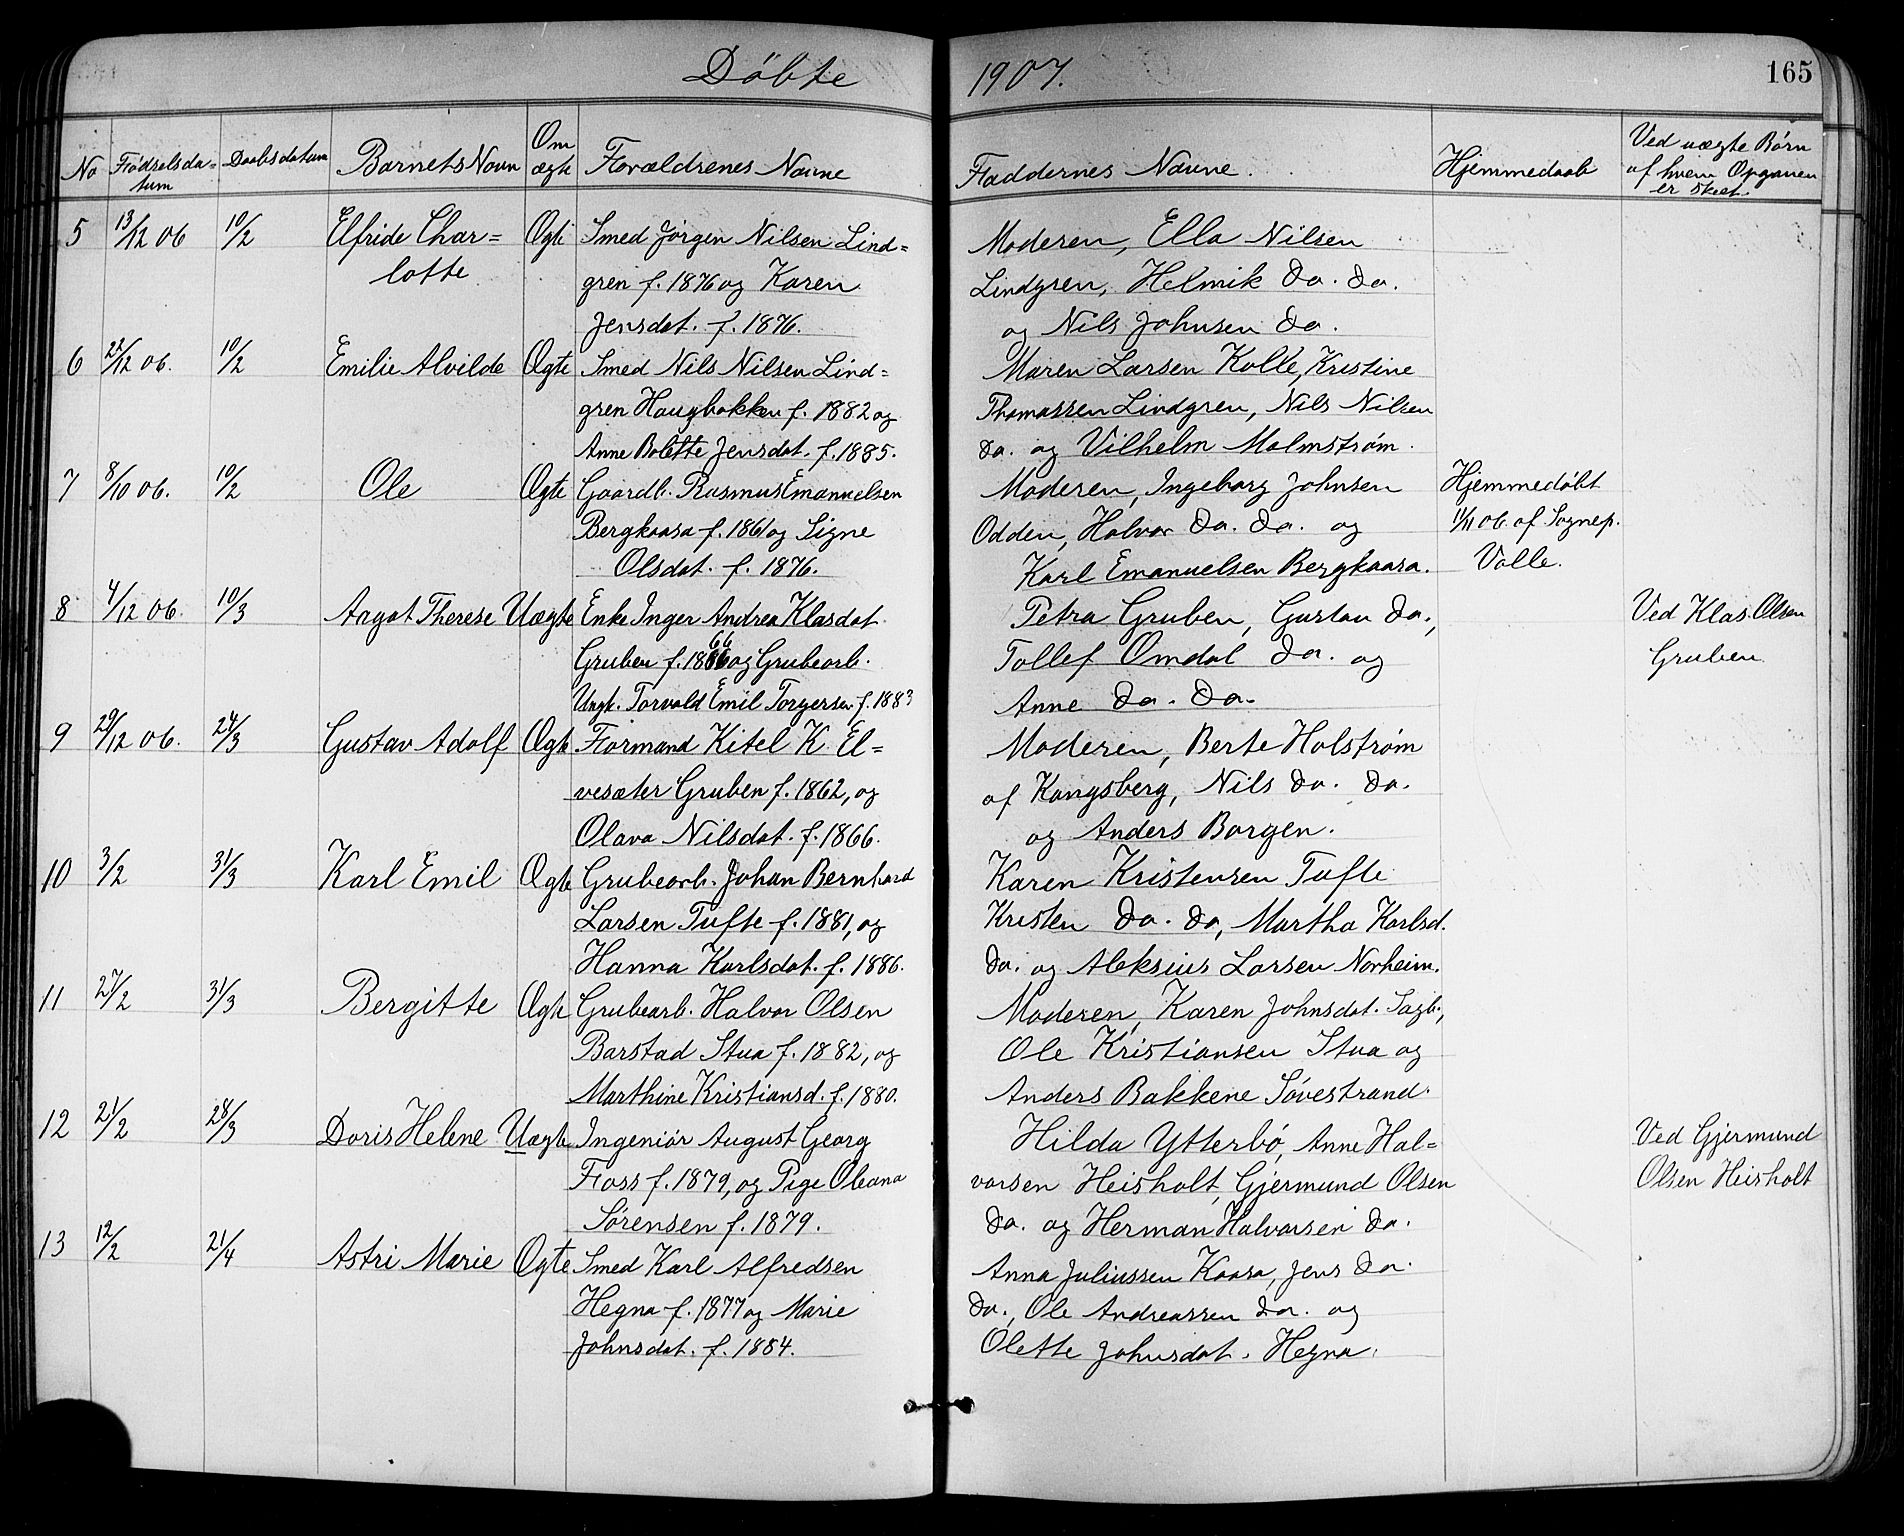 Döbte 1907. 165
No Födselsda=
tum
Daabsdatum
Barnets Navn
Om
ægte
Forældrenes Navne
Faddernes Navne.
Hjemmedaab
Ved uægte Börn
af hvem Opgaven
er skeet.
5 13/12 06 10/2 Elfride Char= Ægte Smed Jörgen Nilsen Lind= Moderen, Ella Nilsen
lotte gren f. 1876 og Karen Lindgren, Helmik do. do.
Jensdat. f. 1876. og Nils Johnsen do.
6 22/12 06. 10/2 Emilie Alvilde Ægte Smed Nils Nilsen Lind= Maren Larsen Kolle, Kristine
gren Haugbakken f. 1882 og Thomassen Lindgren, Nils Nilsen
Anne Bolette Jensdat. f. 1885. do. og Vilhelm Malmström.
7 8/10 06. 10/2 Ole Ægte Gaardb. Rasmus Emanuelsen Moderen, Ingeborg Johnsen Hjemmedöbt
Bergkaasa f. 1861 og Signe Odden, Halvor do. do. og 11/11 06. af Sognep.
Olsdat. f. 1876. Karl Emanuelsen Bergkaasa. Valle.
8 4/12 06. 10/3 Aagot Therese Uægte Enke Inger Andrea Klasdat. Petra Gruben, Gustav do., Ved Klas Olsen
Gruben f. 1866 og Grubearb. Tollef Omdal do. og Gruben
Ungk. Torvald Emil Torgersen f. 1883 Anne do. do.
9 29/12 06. 24/3 Gustav Adolf Ægte Formand Kitel K. El= Moderen, Berte Holström
vesæter Gruben f. 1862, og af Kongsberg, Nils do. do.
Olava Nilsdat. f. 1866. og Anders Borgen.
10 3/2 31/3 Karl Emil Ægte Grubearb. Johan Bernhard Karen Kristensen Tufte
Larsen Tufte f. 1881, og Kristen do. do, Martha Karlsd.
Hanna Karlsdat. f. 1886. do. og Aleksius Larsen Norheim.
11 27/2 31/3 Bergitte Ægte Grubearb. Halvor Olsen Moderen, Karen Johnsdat. Sagb.,
Barstad Stua f. 1882, og Ole Kristiansen Stua og
Marthine Kristiansd. f. 1880. Anders Bakkene Sövestrand.
12 21/2 28/3 Doris Helene Uægte Ingeniör August Georg Hilda Ytterbö, Anne Hal= Ved Gjermund
Foss f. 1879, og Pige Oleana vorsen Heisholt, Gjermund Olsen Olsen Heisholt
Sörensen f. 1879. do. og Herman Halvorsen do.
13 12/2 21/4 Astri Marie Ægte Smed Karl Alfredsen Anna Juliussen Kaasa, Jens do.
Hegna f. 1877 og Marie do., Ole Andreassen do. og
Johnsdat. f. 1884. Olette Johnsdat. Hegna.